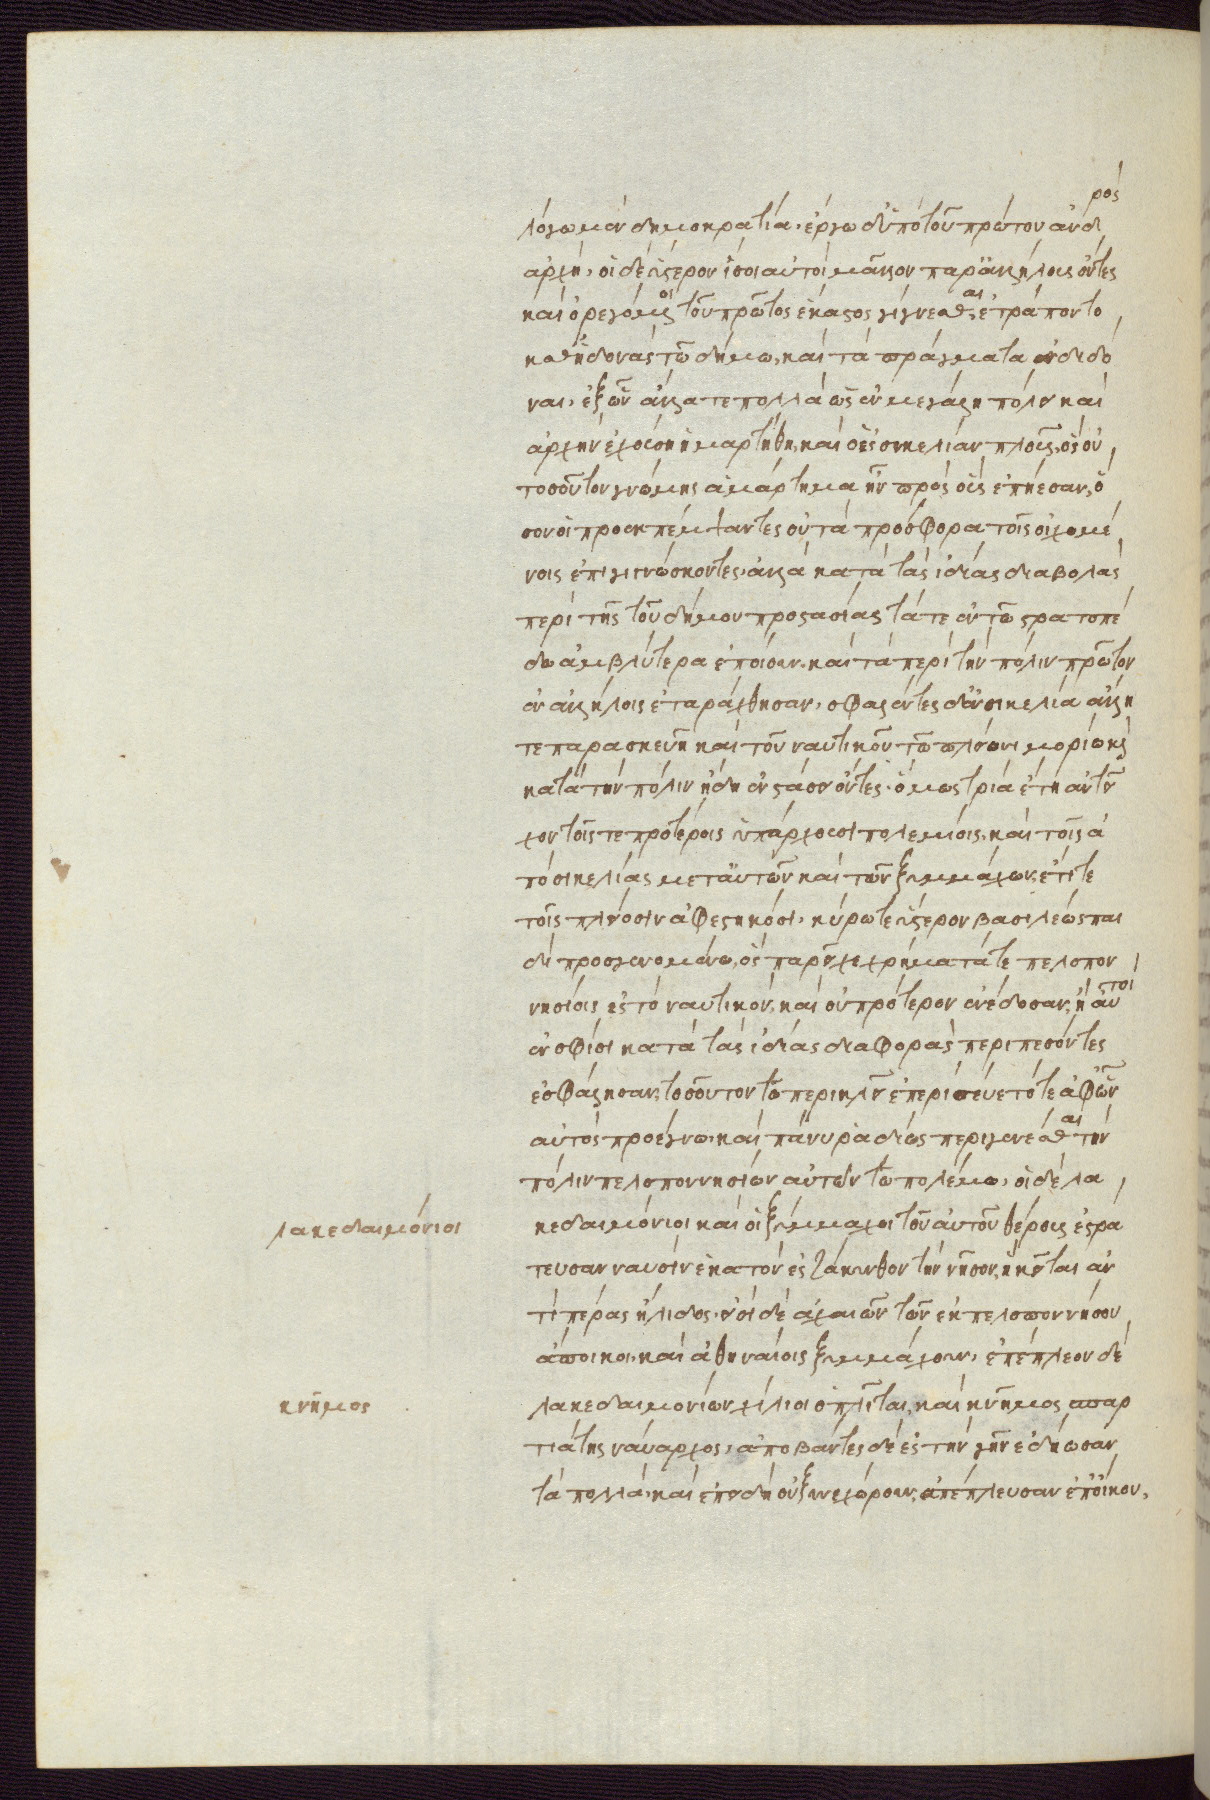 λόγω μὲν δημοκρατία, ἔργω δ' ὑπὸ τοῦ πρώτου ἀνδρὸς
ἀρχή. οἱ δὲ ὕστερον ἴσοι αὐτοὶ μᾶλλον παρ' ἀλλήλοις ὄντες
καὶ ὀρεγόμενοι τοῦ πρῶτος ἕκαστος γίγνεσθαι, ἐτράποντο
καθ' ἡδονὰς τῶ δήμω, καὶ τὰ πράγματα ἐνδιδό
ναι. ἐξ ὧν ἄλλα τε πολλὰ ὡς ἐν μεγάλη πόλει καὶ
ἀρχὴν ἐχούση ἡμαρτήθη, καὶ ὁ ἐς σικελίαν πλοῦς, ὃς οὐ
τοσοῦτον γνώμης ἁμάρτημα ἦν πρὸς οὓς ἐπήεσαν, ὅ
σον οἱ προεκπέμψαντες οὐ τὰ πρόσφορα τοῖς οἰχομέ
νοις ἐπιγιγνώσκοντες, ἀλλὰ κατὰ τὰς ἰδίας διαβολὰς
περὶ τῆς τοῦ δήμου προστασίας τά τε ἐν τῶ στρατοπέ
δω ἀμβλύτερα ἐποίουν, καὶ τὰ περὶ τὴν πόλιν πρῶτον
ἐν ἀλλήλοις ἐταράχθησαν. σφαλέντες δ' ἐν σικελία ἄλλη
τε παρασκευῆ καὶ τοῦ ναυτικοῦ τῶ πλείονι μορίω καὶ
κατὰ τὴν πόλιν ἤδη ἐν στάσει ὄντες, ὅμως τρία ἔτη ἀντεῖ
χον τοῖς τε πρότερον ὑπάρχουσι πολεμίοις, καὶ τοῖς ἀ
πὸ σικελίας μετ' αὐτῶν καὶ τῶν ξυμμάχων, ἔτι τε
τοῖς πλείοσιν ἀφεστηκόσι. κύρω τε ὕστερον βασιλέως παι
δὶ προσγενομένω, ὃς παρεῖχε χρήματά τε πελοπον
νησίοις ἐς τὸ ναυτικόν, καὶ οὐ πρότερον ἐνέδοσαν, ἢ αὐτοὶ
ἐν σφίσι κατὰ τὰς ἰδίας διαφορὰς περιπεσόντες
ἐσφάλησαν. τοσοῦτον τῶ περικλεῖ ἐπερίσσευε τότε ἀφ' ὧν
αὐτὸς προέγνω, καὶ πάνυ ῥαδίως περιγενέσθαι τὴν
πόλιν πελοποννησίων αὐτῶν τῶ πολέμω. οἱ δὲ λα
λακεδαιμόνιοι
κεδαιμόνιοι καὶ οἱ ξύμμαχοι τοῦ αὐτοῦ θέρους ἐστρά
τευσαν ναυσὶν ἑκατὸν ἐς ζάκυνθον τὴν νῆσον, ἣ κεῖται ἀν
τιπέρας ἤλιδος. εἰσὶ δὲ ἀχαιῶν τῶν ἐκ πελοποννήσου
ἄποικοι, καὶ ἀθηναίοις ξυμμάχουν. ἐπέπλεον δὲ
κνῆμος
λακεδαιμονίων χίλιοι ὁπλῖται, καὶ κνῆμος σπαρ
τιάτης ναύαρχος. ἀποβάντες δὲ ἐς τὴν γῆν ἐδήωσαν
τὰ πολλά. καὶ ἐπειδὴ οὐ ξυνεχώρουν, ἀπέπλευσαν ἐπ' οἴκου.